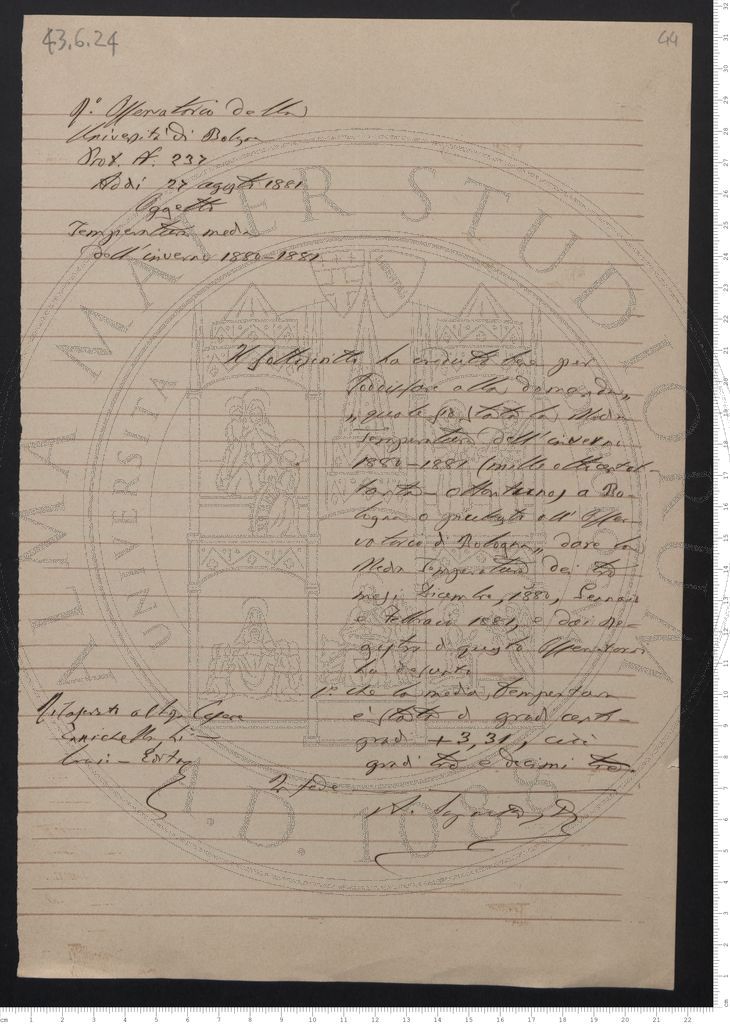 43.6.24
44
R.º Osservatorio della
Università di Bologna
Prot. N. 237
Addì 27 agosto 1881
Oggetto
Temperatura media
dell'inverno 1880-1881
Il sottoscritto ha creduto bene per
soddisfare alla domanda „
„ quale sia stata la Media
Temperatura dell'inverno
1880-1881 (mille ottocento
ottantuno) a Bo-
logna o presso all'Osser-
vatorio di Bologna „ dare la
Media Temperatura dei tre
mesi Dicembre, 1880, Gennaio
e Febbraio 1881, e dai Re-
gistri di questo Osservatorio
ha desunto
1.º che la media temperatura
è stata di gradi centi-
gradi +3,31, cioè
gradi tre e decimi tre.
Rilasciato al Sig.
In fede
ALMA MATER STUDIORUM
UNIVERSITÀ
A.D. 1088